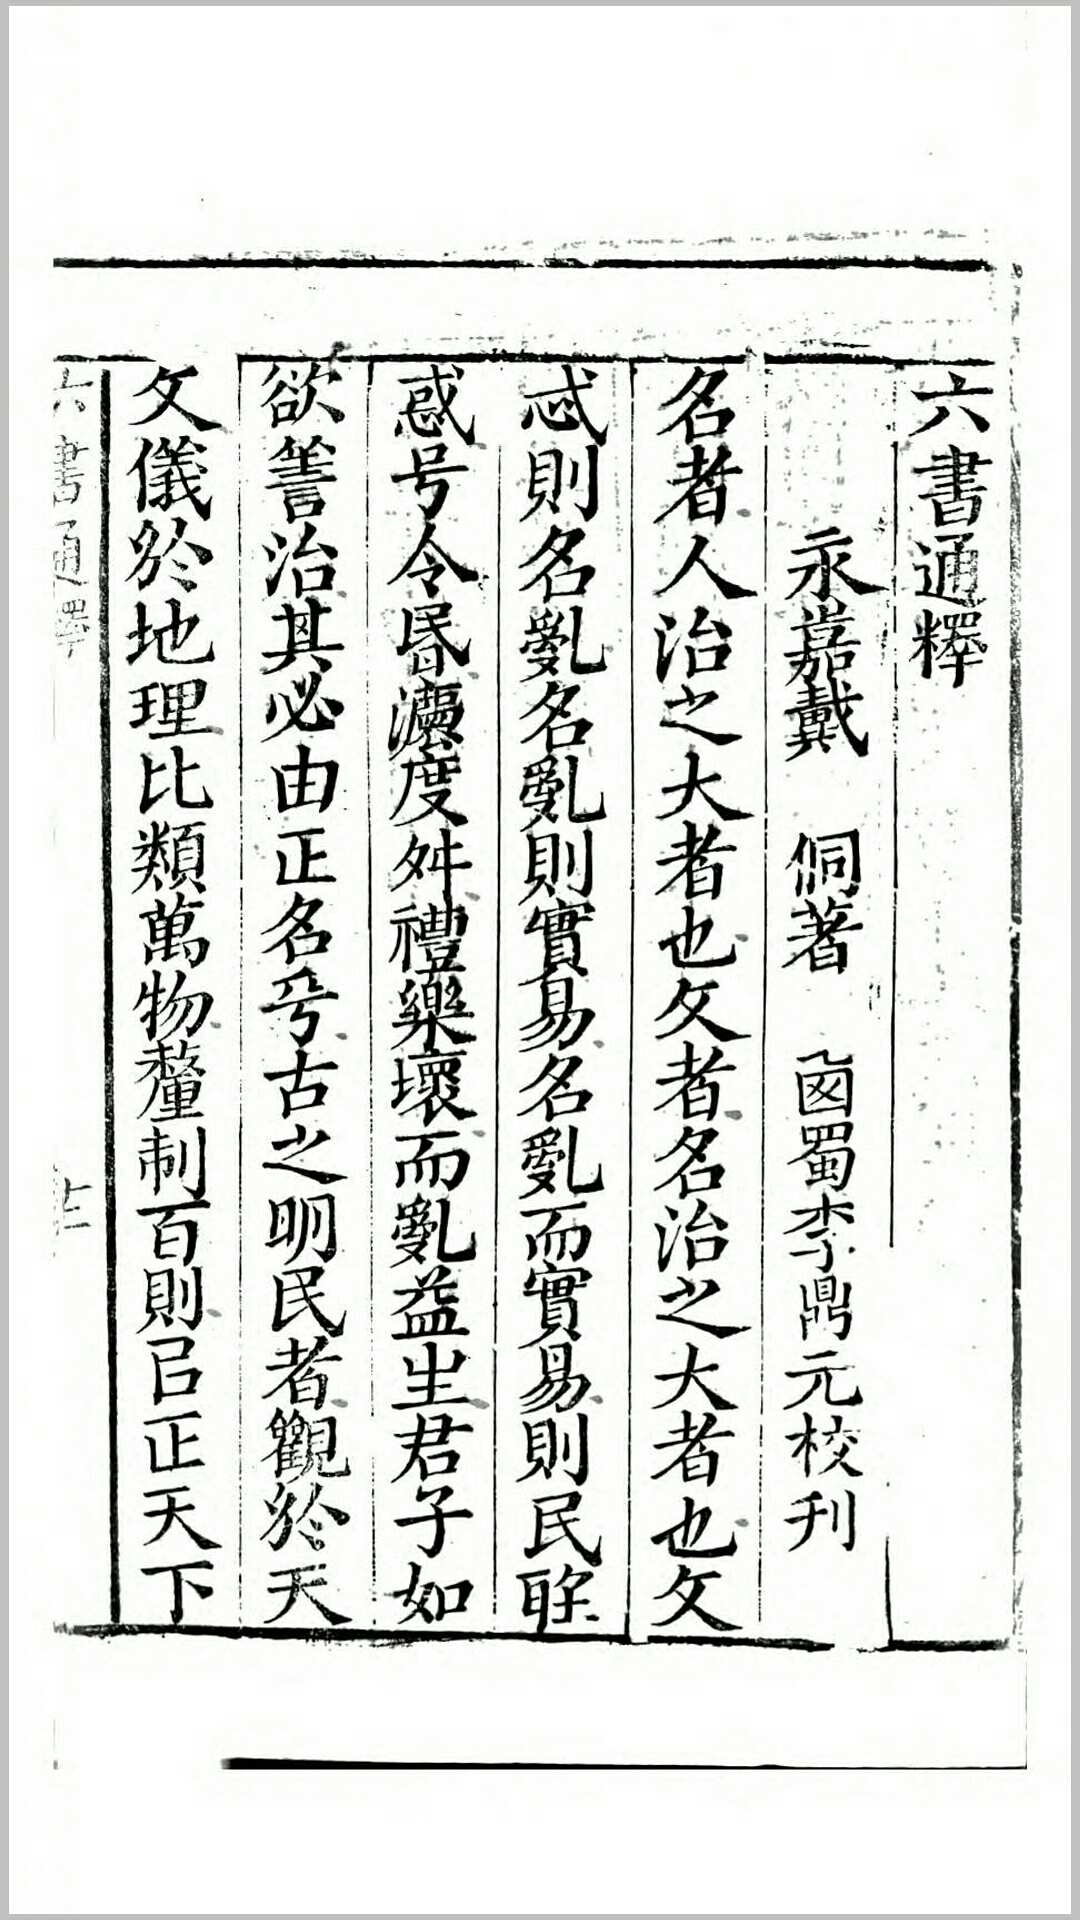 六書通釋
永嘉戴　侗著　西蜀李鼎元校刊
名者人治之大者也文者名治之大者也文
忒則名亂名亂則實易名亂而實易則民聽
惑号令昬灋度舛禮樂壞而亂益生君子如
欲善治其必由正名乎古之明民者觀於天
文儀於地理比類萬物釐制百則㠯正天下
六書通釋